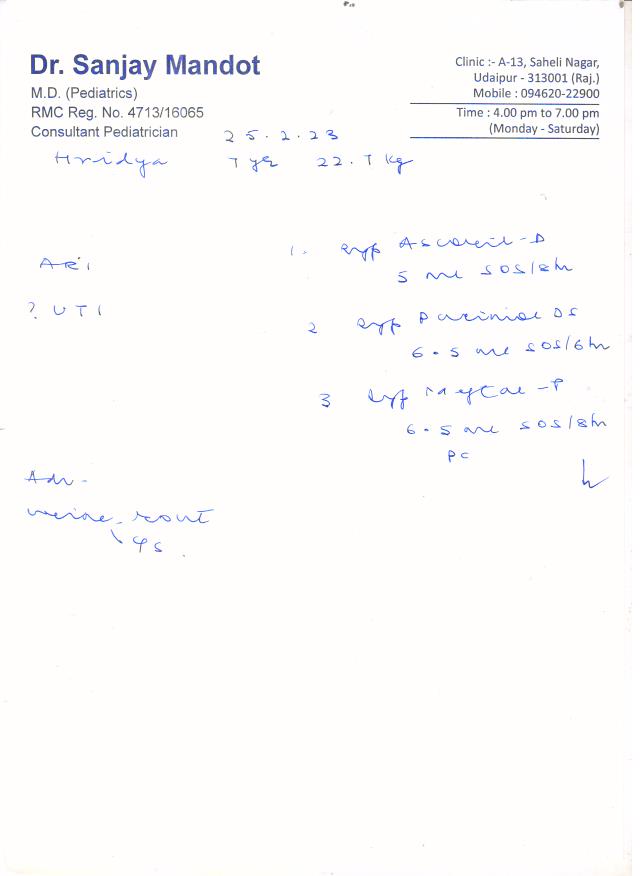 Dr. Sanjay Mandot
M.D. (Pediatrics)
RMC Reg. No. 4713/16065
Consultant Pediatrician
Clinic :- A-13, Saheli Nagar,
Udaipur - 313001 (Raj.)
Mobile : 094620-22900
Time : 4.00 pm to 7.00 pm
(Monday - Saturday)
25.2.23
Hridya 7 yr 22.7 kg
ARI
? UTI
1. syp Ascoril-D
5 ml SOS/8hr
2 syp DS
6.5 ml SOS/6hr
3 syp -P
6.5 ml SOS/8hr
PC
Adv -
urine rout